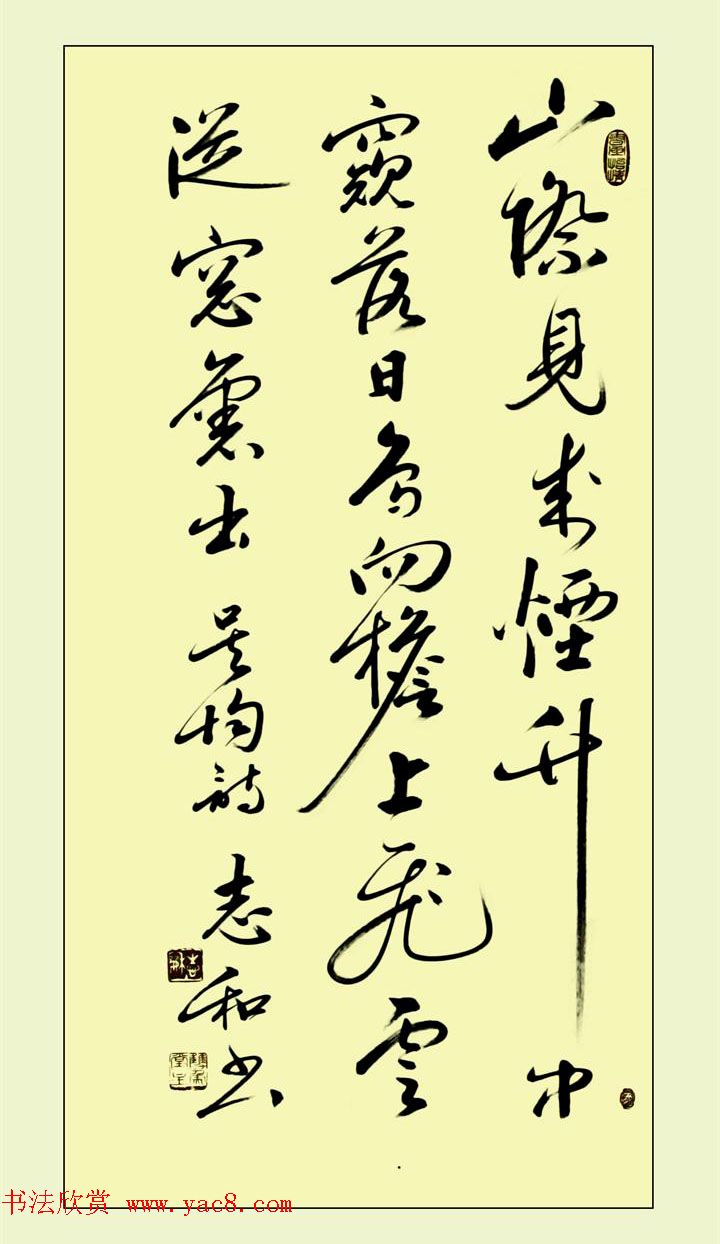 山際見來煙竹中
窺落日鳥向檐上飛雲
從窓裏出 吳均詩 志和書
书法欣赏 www.yac8.com